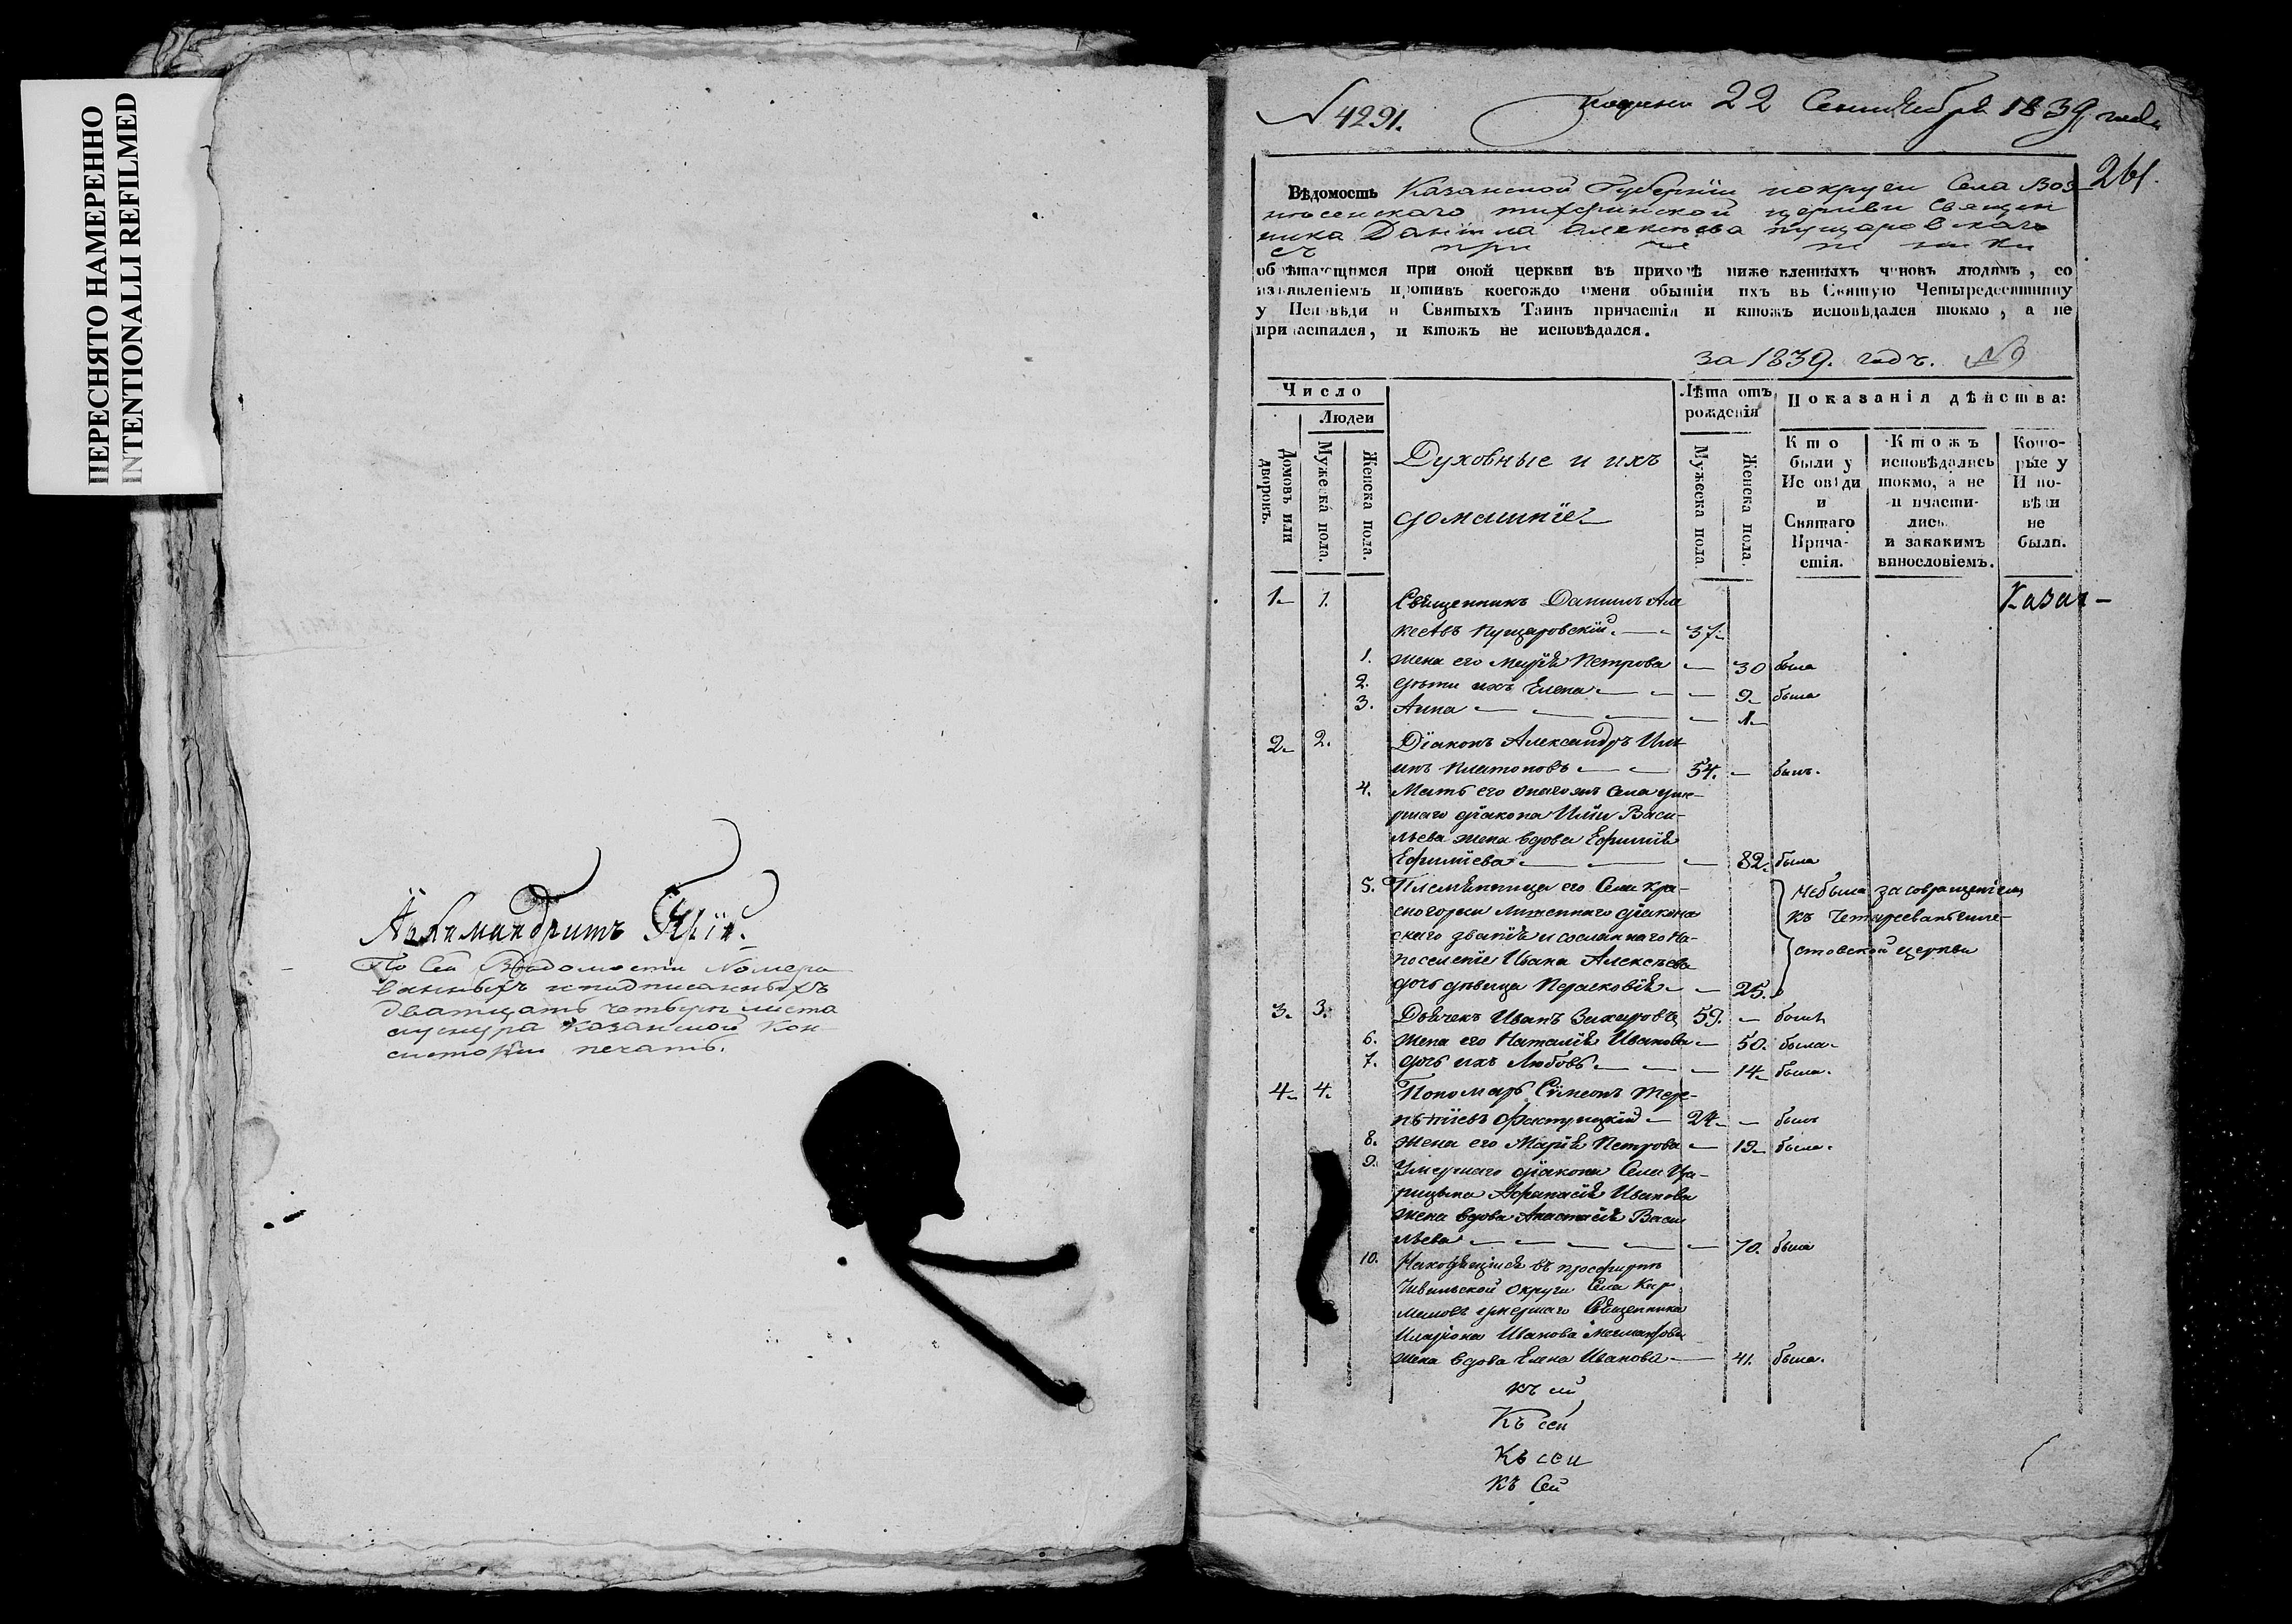 ПЕРЕСНЯТО НАМЕРЕННО
INTENTIONALLI REFILMED
Архимандритъ
По сей Ведомости Номеро
ванныхъ и подписанныхъ
дватцать четыре листа
Казанской Кон
систоріи печать.
N 4291.
подана 22 Сентября 1839 года
261.
Вѣдомость Казанской Губерніи округи Села Воз
несенскаго тихфинской церкви Священ
ника Даніила Алексѣева Пущаровскаго
съ при че т ни ки
обрѣтающимся при оной церкви въ приходѣ ниже вленныхъ чиновъ людямъ, со
изъявленіемъ противъ коегождо имени обытіи ихъ въ Святую Четыредесятницу
у Исповѣди и Святыхъ Таинъ причастія и ктожъ исповѣдался токмо, а не
причастился, и ктожъ не исповѣдался.
за 1839. годъ. N 9
Число
Людей
Домовъ или дворовъ.
Мужеска пола.
Женска пола.
Духовные и ихъ
домашніе
Лѣта отъ
рожденія
Мужеска пола
Женска пола.
Показанія дѣйства:
Кто
были у
Исповѣди
и
Святаго
Прича-
стія.
Ктожъ
исповѣдались
токмо, а не
причасти-
лись
и закакимъ
винословіемъ.
Кото-
рые у
Испо-
вѣди
не
были.
1. 1. Священникъ Даніилъ Але
ксеевъ Пущаровскій 37 Казан-
1. жена его Марія Петрова 30 была
2. дѣти ихъ Елена 9 была
3. Анна 1
2. 2. Діаконъ Александръ Иль
инъ Платоновъ 54. былъ.
4. Мать его онагожъ села уме-
ршаго діакона Ильи Васи-
льева жена вдова Ефимія
Ефимиева 82. была
5. Племянница его Села Кра-
сногорки лишеннаго діакон
скаго званія и сосланнаго на
поселеніе Ивана Алексѣева
дочь дѣвица Парасковія 25. небыла за совращеніемъ
къ Четыреевангели-
стовской церкви
3. 3. Дьячекъ Иванъ Захаровъ 59. былъ
6. жена его Наталія Иванова 50. была
7. дочь ихъ Любовь 14 была.
4. 4. Пономарь Симеонъ Тере-
нтіевъ 24 былъ
8. жена его Марія Петрова 19 была.
9. Умершаго діакона Села Ца-
рицына Афанасія Иванова
жена вдова Анастасія Васи
льева 70. была
10. Находящаяся въ просфирнѣ
Чивильской округи Села
умершаго Священника
Иларіона Иванова
жена вдова Елена Иванова 41. была.
къ сей
Къ сей
Къ сей
къ Сей